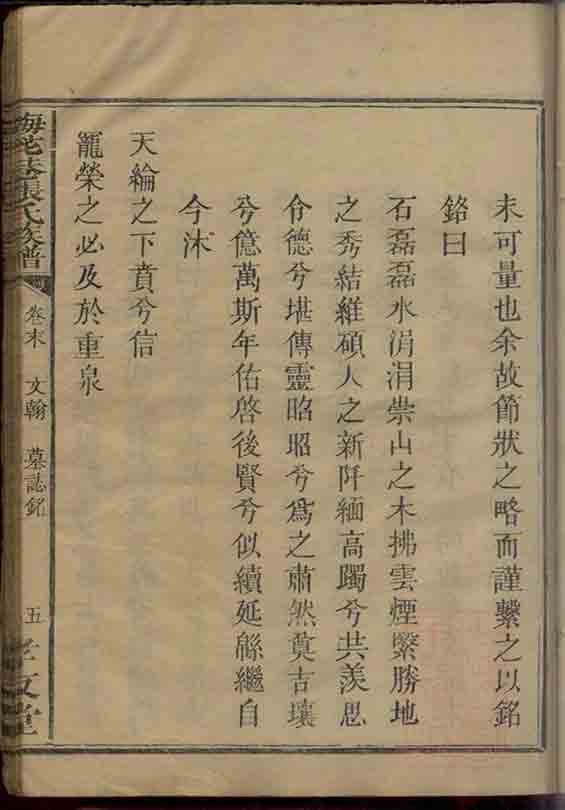 未可量也余故節狀之略而謹繫之以銘
銘曰
石磊磊水涓涓崇山之木拂雲煙繄勝地
之秀結維碩人之新阡緬高躅兮共羨思
令德兮堪傳靈昭昭兮爲之肅然奠吉壤
兮億萬斯年佑啓後賢兮似續延緜繼自
今沐
天綸之下賁兮信
寵榮之必及於重泉
張氏族譜
卷末 文翰 墓誌銘
五
孝友堂